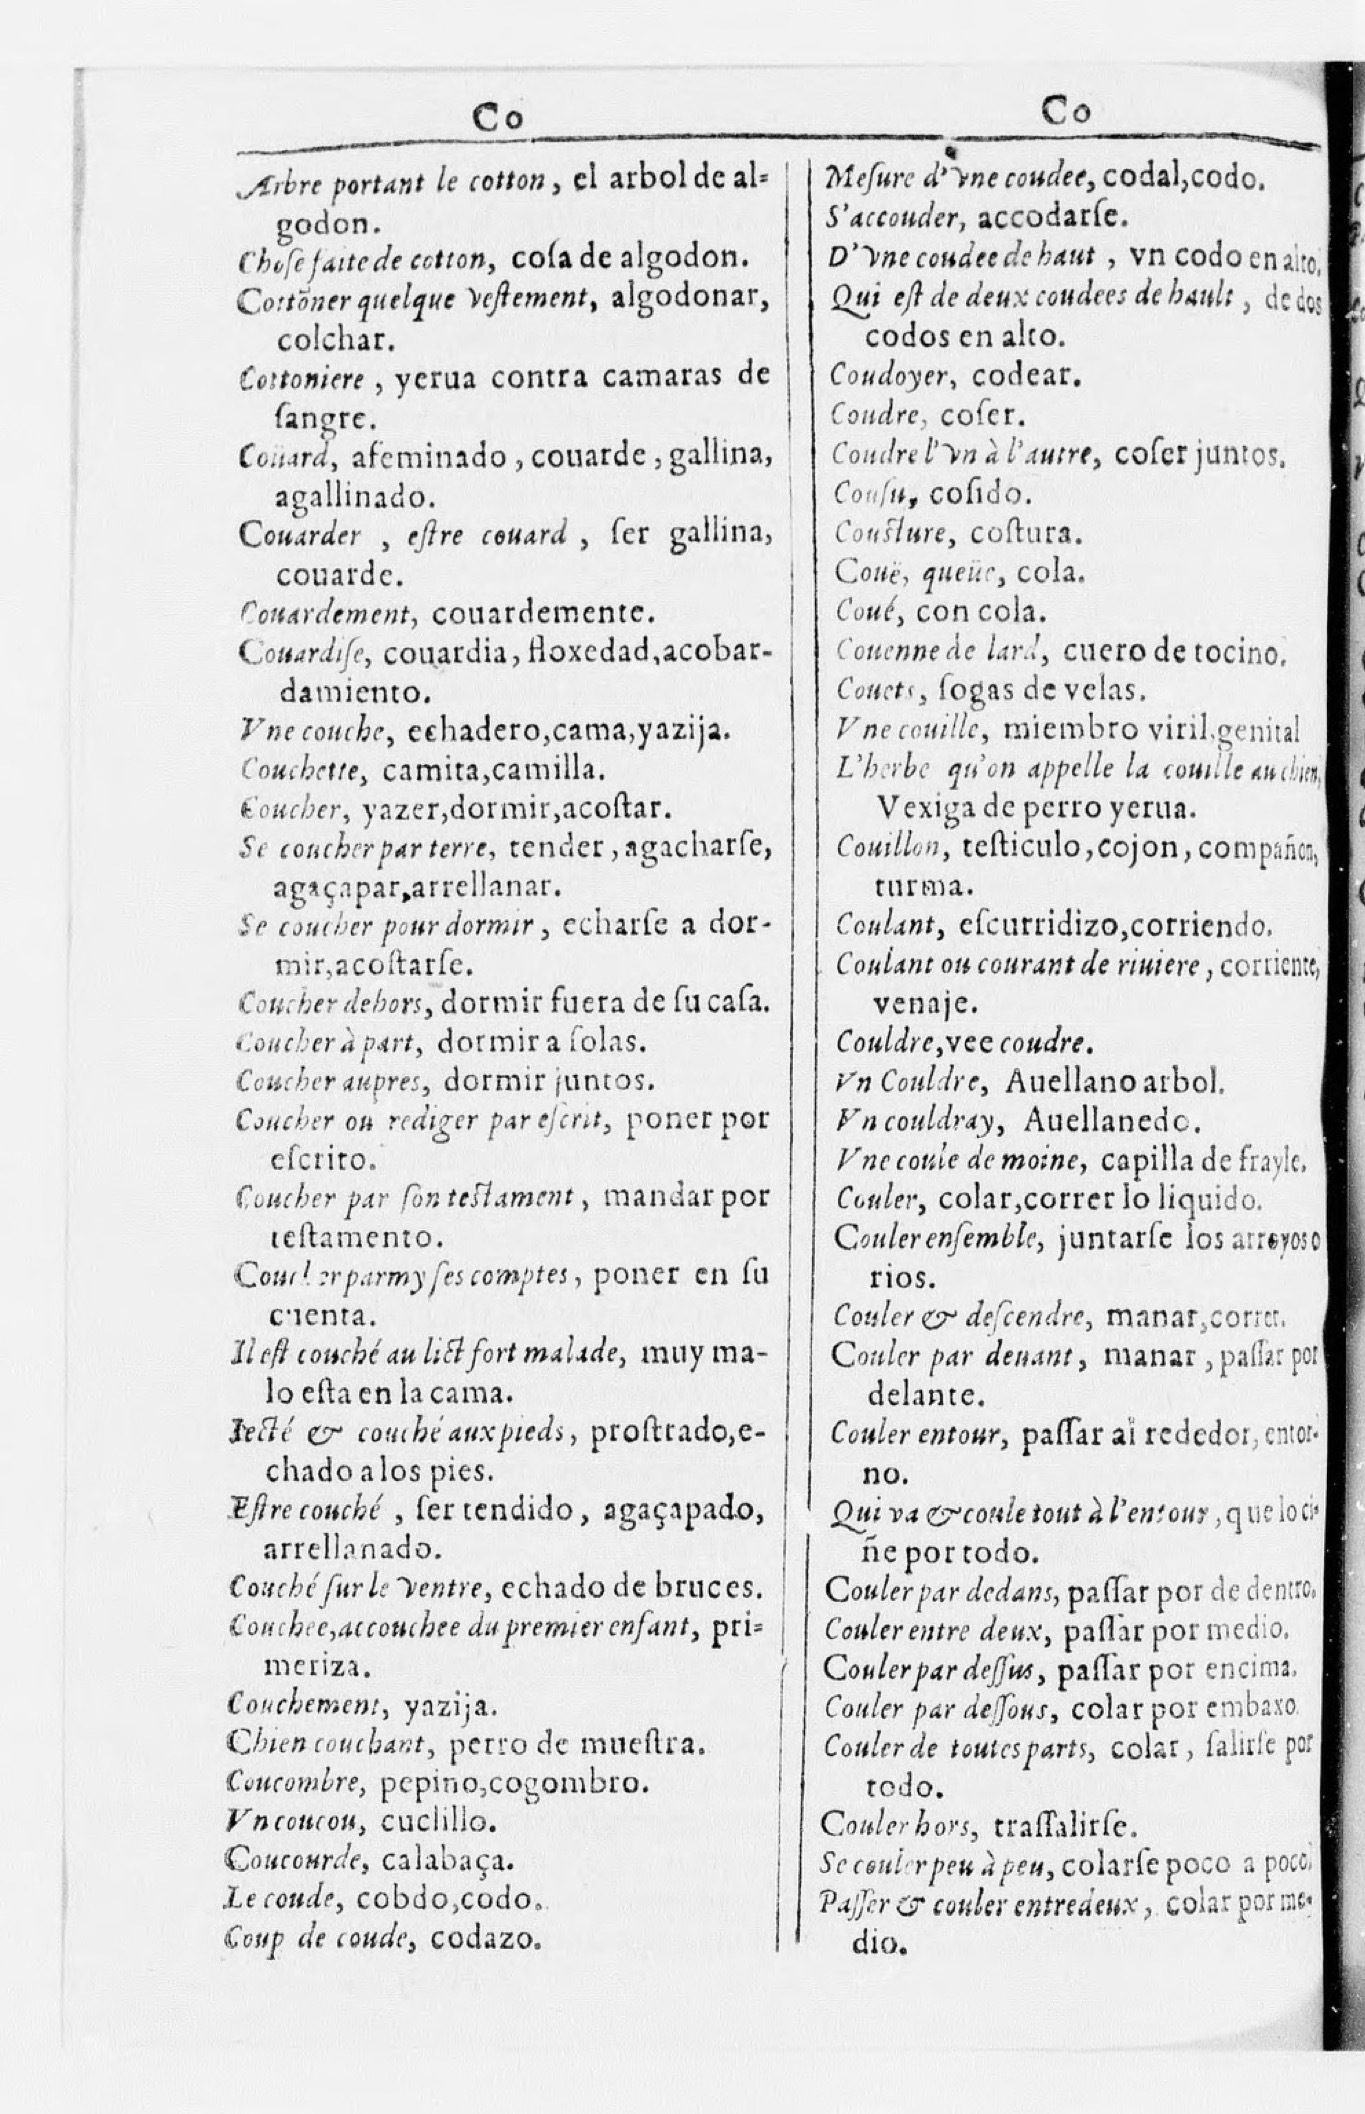 Co
Arbre portant le cotton, el arbol de al=
godon.
Choſe faite de cotton, coſa de algodon.
Cottõner quelque veſtement, algodonar,
colchar.
Cottoniere, yerua contra camaras de
ſangre.
Coüard, afeminado, couarde, gallina,
agallinado.
Couarder, eſtre couard, ſer gallina,
couarde.
Couardement, couardemente.
Couardiſe, couardia, floxedad, acobar-
damiento.
Vne couche, echadero, cama, yazija.
Couchette, camita, camilla.
Coucher, yazer, dormir, acoſtar.
Se coucher par terre, tender, agacharſe,
agaçapar, arrellanar.
Se coucher pour dormir, echarſe a dor-
mir, acoſtarſe.
Coucher dehors, dormir fuera de ſu caſa.
Coucher à part, dormir a ſolas.
Coucher aupres, dormir juntos.
Coucher ou rediger par eſcrit, poner por
eſcrito.
Coucher par ſon teſtament, mandar por
teſtamento.
Coucher parmy ſes comptes, poner en ſu
cuenta.
Il eſt couché au lict fort malade, muy ma-
lo eſta en la cama.
Iecté & couché aux pieds, proſtrado, e-
chado a los pies.
Eſtre couché, ſer tendido, agaçapado,
arrellanado.
Couché ſur le ventre, echado de bruces.
Couchee, accouchee du premier enfant, pri=
meriza.
Couchement, yazija.
Chien couchant, perro de mueſtra.
Coucombre, pepino, cogombro.
Vn coucou, cuclillo.
Coucourde, calabaça.
Le coude, cobdo, codo.
Coup de coude, codazo.
Co
Meſure d'vne coudee, codal, codo.
S'accouder, accodarſe.
D'vne coudee de haut, vn codo en alto.
Qui eſt de deux coudees de hault, de dos
codos en alto.
Coudoyer, codear.
Coudre, coſer.
Coudre l'vn à l'autre, coſer juntos.
Couſu, coſido.
Couſture, coſtura.
Couë, queüe, cola.
Coué, con cola.
Couenne de lard, cuero de tocino.
Couets, ſogas de velas.
Vne couille, miembro viril, genital
L'herbe qu'on appelle la couille au chien,
Vexiga de perro yerua.
Couillon, teſticulo, cojon, compañon,
turma.
Coulant, eſcurridizo, corriendo.
Coulant ou courant de riuiere, corriente,
venaje.
Couldre, vee coudre.
Vn Couldre, Auellano arbol.
Vn couldray, Auellanedo.
Vne coule de moine, capilla de frayle.
Couler, colar, correr lo liquido.
Couler enſemble, juntarſe los arroyos o
rios.
Couler & deſcendre, manar, correr.
Couler par deuant, manar, paſſar por
delante.
Couler entour, paſſar al rededor, entor-
no.
Qui va & coule tout à l'entour, que lo ci-
ñe por todo.
Couler par dedans, paſſar por de dentro.
Couler entre deux, paſſar por medio.
Couler par deſſus, paſſar por encima.
Couler par deſſous, colar por embaxo.
Couler de toutes parts, colar, ſalirſe por
todo.
Couler hors, traſſalirſe.
Se couler peu à peu, colarſe poco a poco.
Paſſer & couler entredeux, colar por me-
dio.